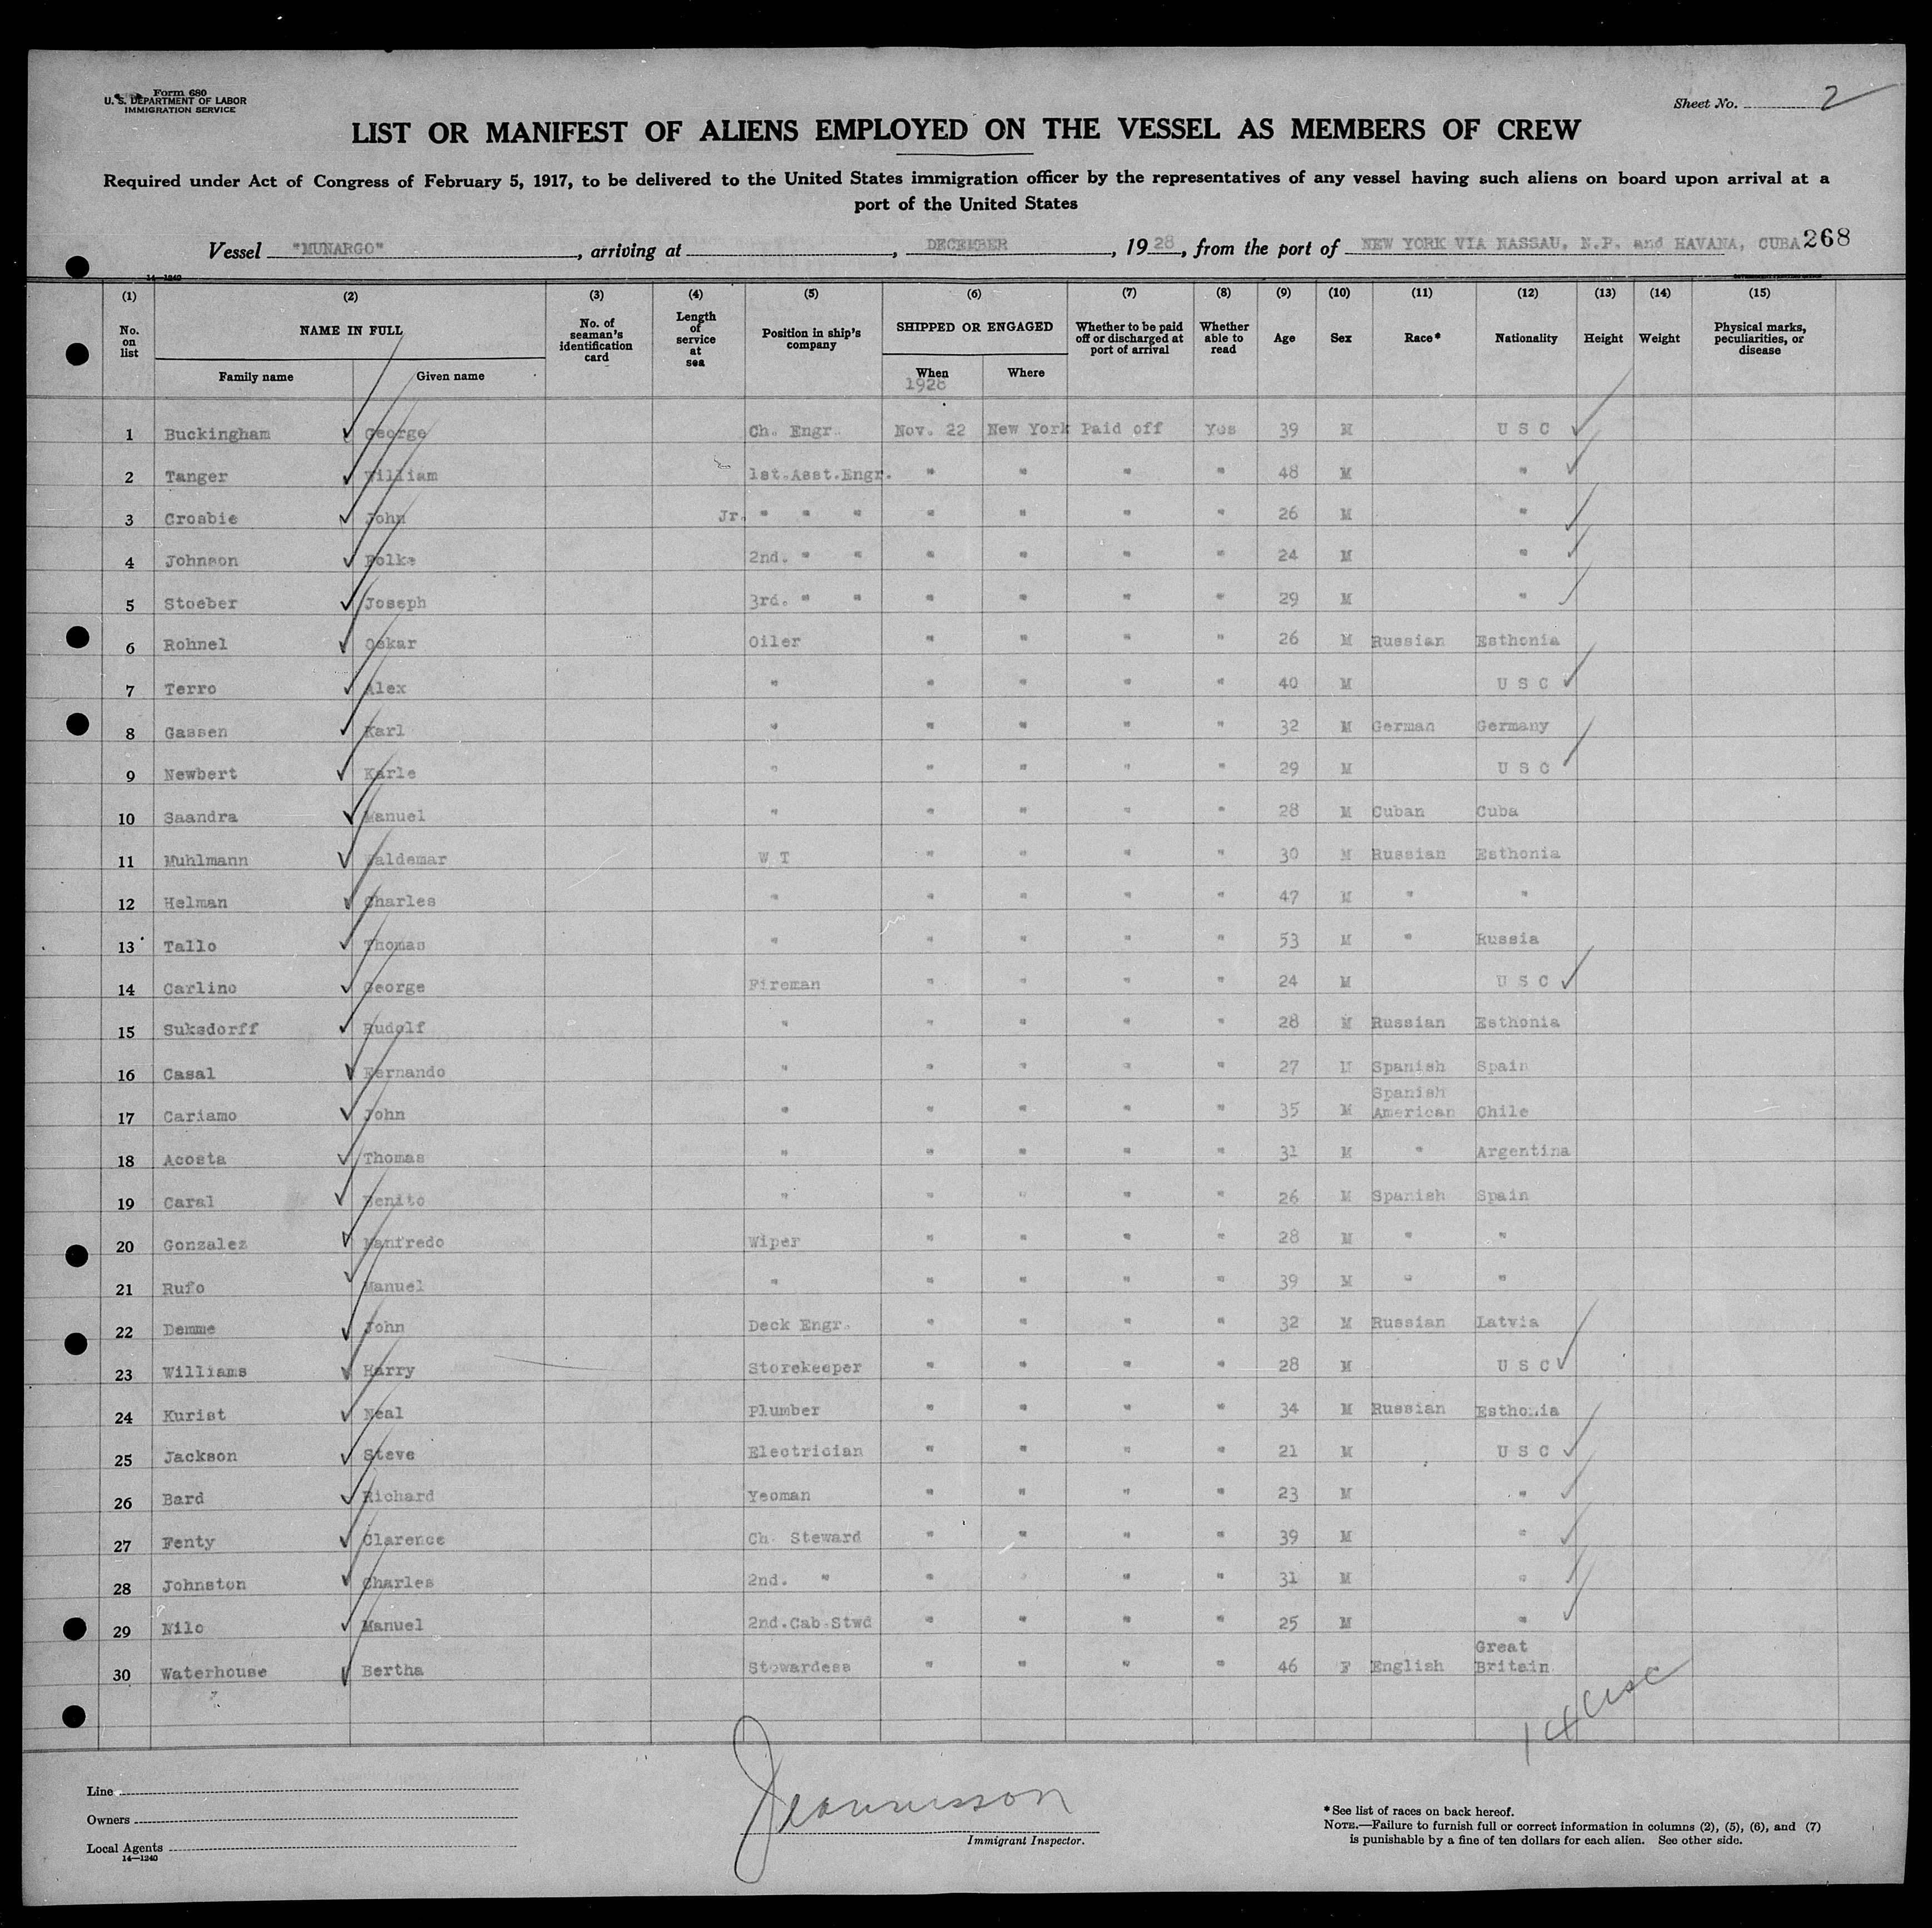 Form 680
U. S. DEPARTMENT OF LABOR
IMMIGRATION SERVICE
Sheet No. 2
LIST OR MANIFEST OF ALIENS EMPLOYED ON THE VESSEL AS MEMBERS OF CREW
Required under Act of Congress of February 5, 1917, to be delivered to the United States immigration officer by the representatives of any vessel having such aliens on board upon arrival at a
port of the United States
Vessel "MUNARGO", arriving at , DECEMBER, 1928, from the port of NEW YORK VIA NASSAU, N.P. and HAVANA, CUBA 268
14—1240
(1) (2) (3) (4) (5) (6) (7) (8) (9) (10) (11) (12) (13) (14) (15)
No. on list NAME IN FULL Family name Given name No. of seaman's identification card Length of service at sea Position in ship's company SHIPPED OR ENGAGED When Where Whether to be paid off or discharged at port of arrival Whether able to read Age Sex Race* Nationality Height Weight Physical marks, peculiarities, or disease
1928
1 Buckingham George Ch. Engr. Nov. 22 New York Paid off Yes 39 M U S C
2 Tanger William 1st.Asst.Engr. " " " " 48 M "
3 Crosbie John Jr. " " " " " " " 26 M "
4 Johnson Folke 2nd. " " " " " " 24 M "
5 Stoeber Joseph 3rd. " " " " " " 29 M "
6 Rohnel Oskar Oiler " " " " 26 M Russian Esthonia
7 Terro Alex " " " " " 40 M U S C
8 Gassen Karl " " " " " 32 M German Germany
9 Newbert Karle " " " " " 29 M U S C
10 Saandra Manuel " " " " " 28 M Cuban Cuba
11 Muhlmann Waldemar W T " " " " 30 M Russian Esthonia
12 Helman Charles " " " " " 47 M " "
13 Tallo Thomas " " " " " 53 M " Russia
14 Carlino George Fireman " " " " 24 M U S C
15 Suksdorff Rudolf " " " " " 28 M Russian Esthonia
16 Casal Fernando " " " " " 27 M Spanish Spain
17 Cariamo John " " " " " 35 M Spanish American Chile
18 Acosta Thomas " " " " " 31 M " Argentina
19 Caral Benito " " " " " 26 M Spanish Spain
20 Gonzalez Manfredo Wiper " " " " 28 M " "
21 Rufo Manuel " " " " " 39 M " "
22 Demme John Deck Engr. " " " " 32 M Russian Latvia
23 Williams Harry Storekeeper " " " " 28 M U S C
24 Kurist Neal Plumber " " " " 34 M Russian Esthonia
25 Jackson Steve Electrician " " " " 21 M U S C
26 Bard Richard Yeoman " " " " 23 M "
27 Fenty Clarence Ch. Steward " " " " 39 M "
28 Johnston Charles 2nd. " " " " " 31 M "
29 Nilo Manuel 2nd.Cab.Stwd " " " " 25 M "
30 Waterhouse Bertha Stewardess " " " " 46 F English Great Britain
14 USC
Line
Owners
Local Agents
14—1240
Immigrant Inspector.
*See list of races on back hereof.
NOTE.—Failure to furnish full or correct information in columns (2), (5), (6), and (7)
is punishable by a fine of ten dollars for each alien. See other side.